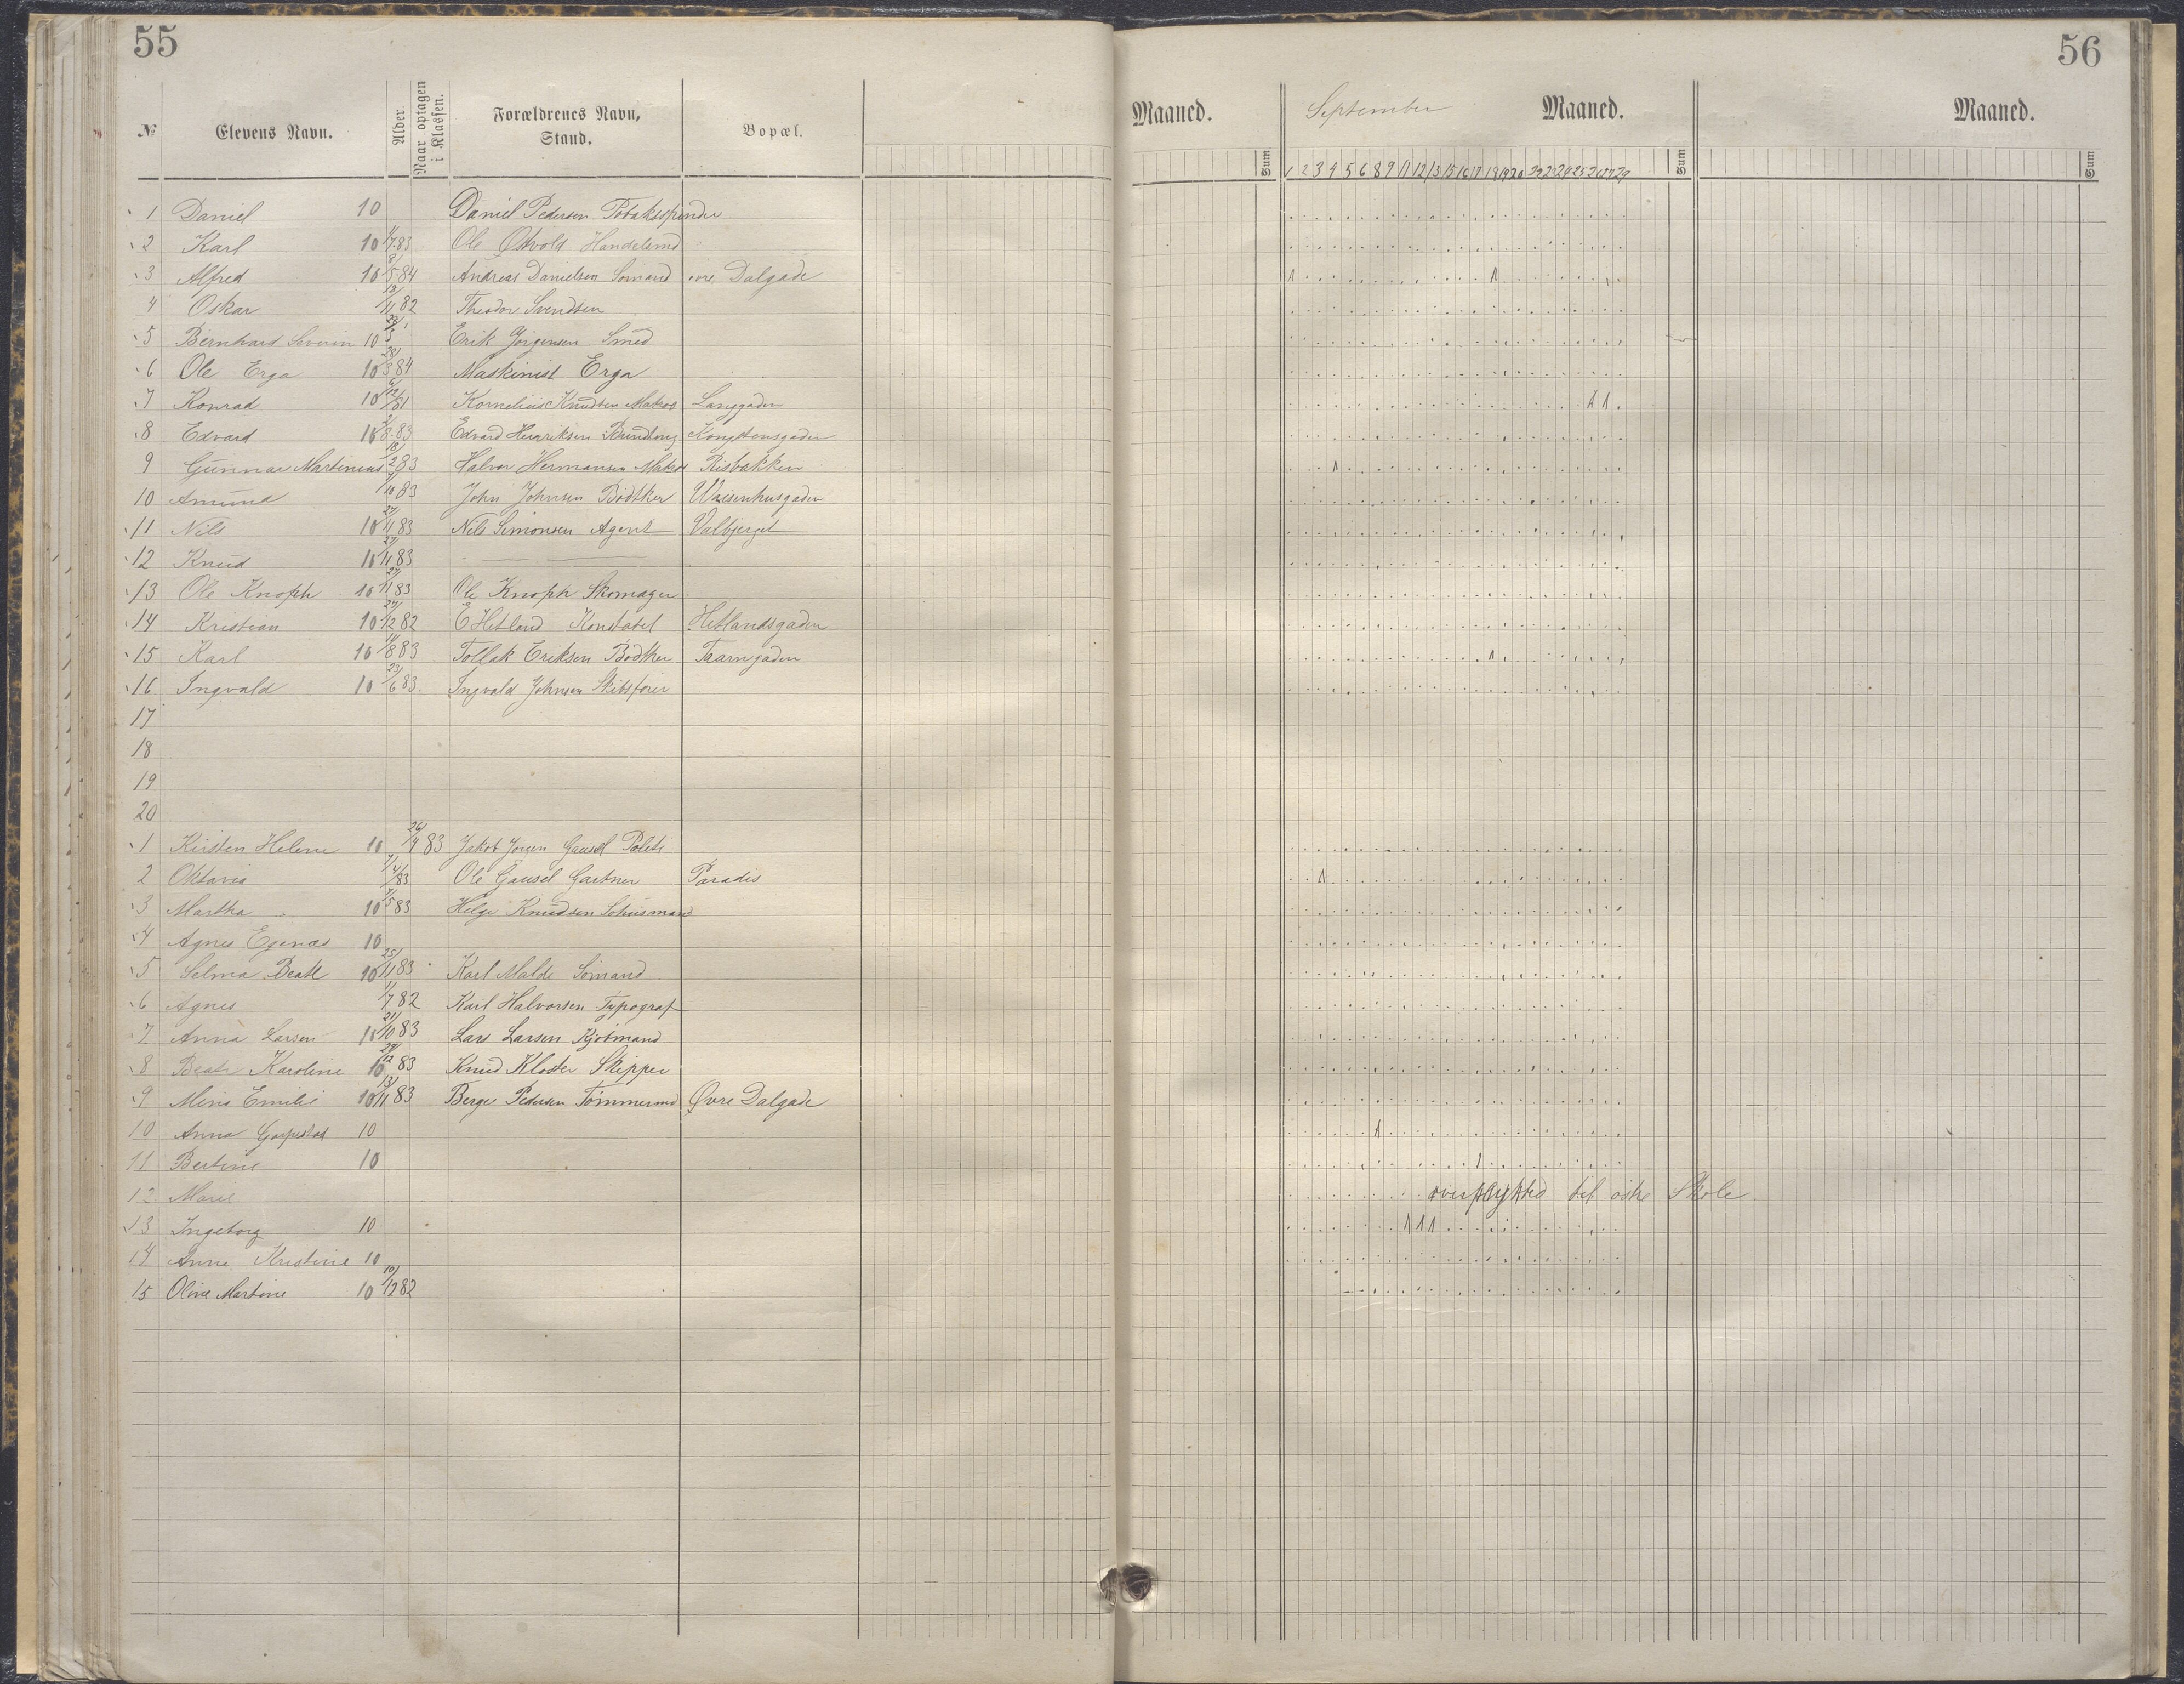 55
№ Elevens Navn. Alder. Naar optagen i Klassen. Forældrenes Navn, Stand. Bopæl.
1 Daniel 10 Daniel Pedersen
2 Karl 10 83 Ole Østvold Handelsmd
3 Alfred 10 5 84 Andreas Danielsen Sømand øvre Dalgade
4 Oskar 13/11 82 Theodor Svendsen
5 Bernhard Severin 10 Erik Jørgensen Smed
6 Ole Erga 10 28/3 84 Maskinist Erga
7 Konrad 10 6/12 81 Kornelius Knudsen Matros Langgaden
8 Edvard 10 8 83 Edvard Henriksen Kongstensgaden
9 Gunnar Martinius 18/2 83 Halvor Hermansen Matros Risbakken
10 Amund 10 83 John Johnsen Bødtker Waisenhusgaden
11 Nils 10 27/11 83 Nils Simonsen Agent Valbjerget
12 Knud 10 27/11 83 —
13 Ole Knoph 10 27/11 83 Ole Knoph Skomager
14 Kristian 10 27/12 82 E Hetland Konstabel Hetlandsgaden
15 Karl 10 8 83 Tollak Eriksen Bødker Taarngaden
16 Ingvald 10 23/6 83. Ingvald Johnsen Skibsfører
17
18
19
20
1 Kirsten Helene 10 26/9 83 Jakob Jørgen Gausel Politi
2 Oktavia 7/4 83 Ole Gausel Gartner Paradis
3 Martha 10 5 83 Helge Knudsen
4 Agnes Egenæs 10
5 Selma Beate 10 25/11 83 Karl Malde Sømand
6 Agnes 1/7 82 Karl Halvorsen Typograf
7 Anna Larsen 10 21/10 83 Lars Larsen Kjøbmand
8 Beate Karoline 10 29/12 83 Knud Kloster Skipper
9 Mina Emilie 10 13/11 83 Berge Pedersen Tømmermd Øvre Dalgade
10 Anna Garpestad 10
11 Bertine 10
12 Marie
13 Ingeborg 10
14 Anne Kristine 10
15 Oline Martine 10 19/12 82
56
Maaned. Sum
September Maaned. Sum
Maaned. Sum
1 2 3 4 5 6 8 9 11 12 13 15 16 17 18 19 20 22 23 24 25 26 27 29
overflyttet til østre Skole